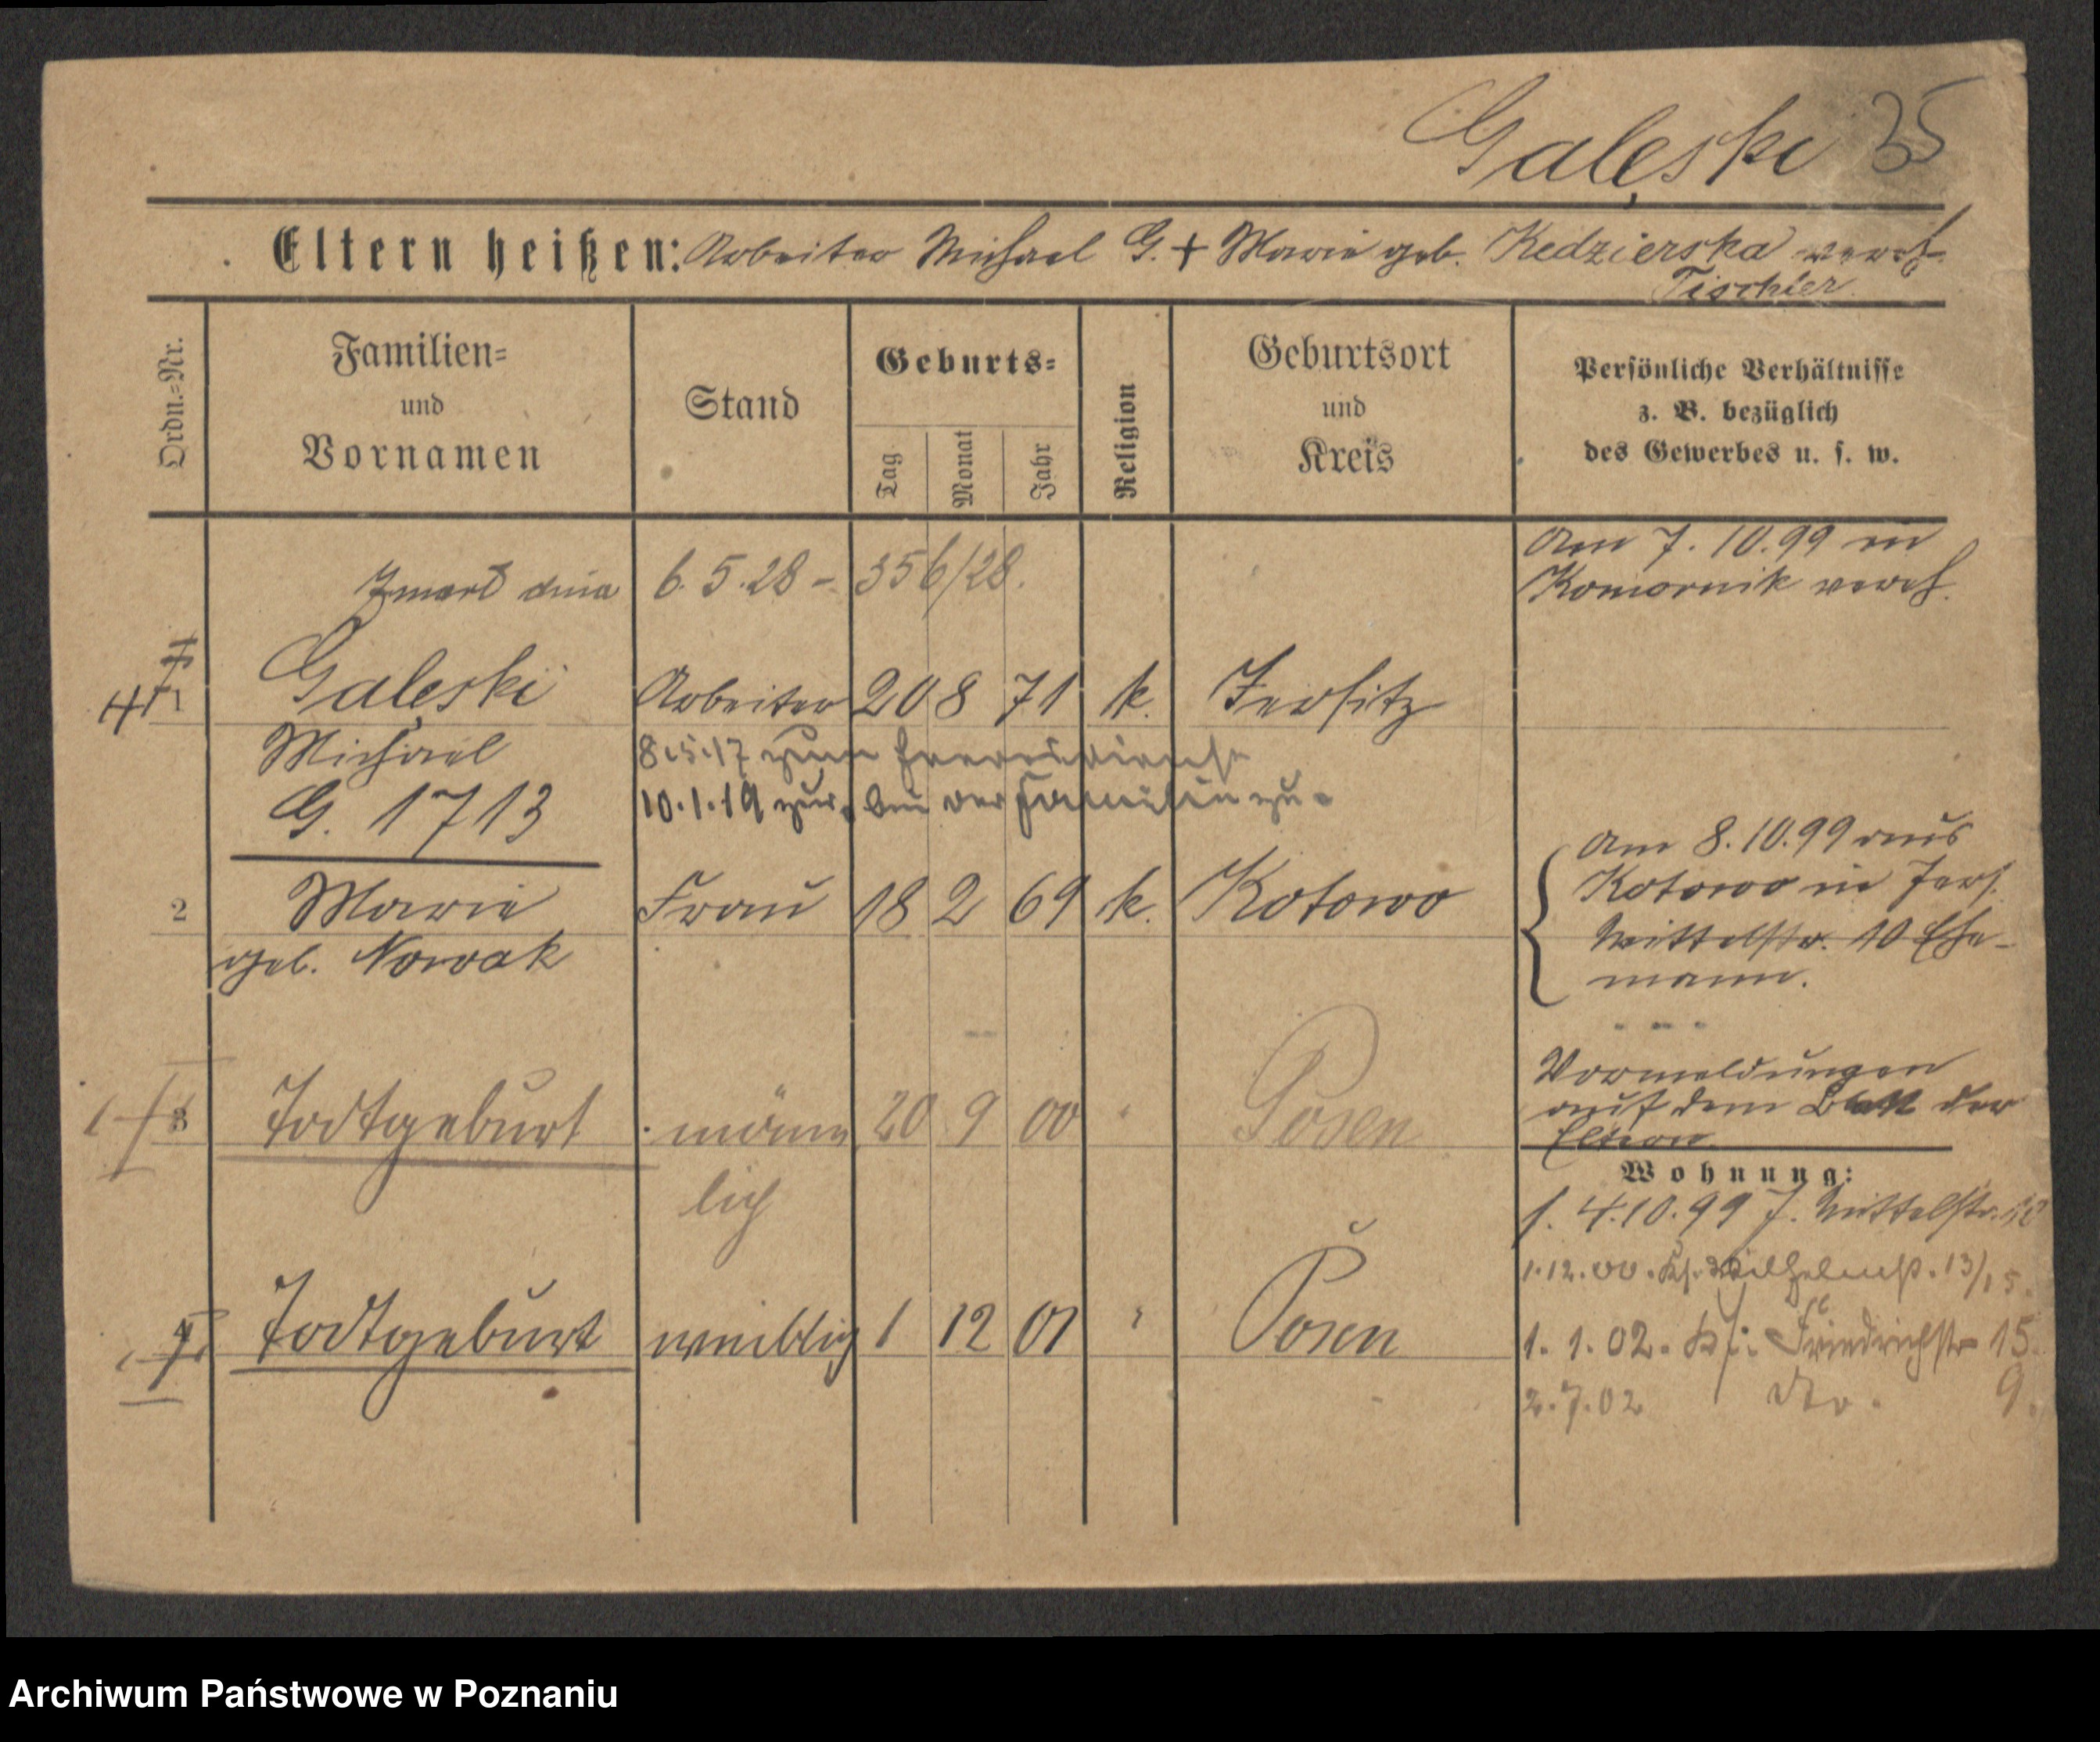 Galęski 35
Eltern heißen: Arbeiter Michael G. + Marie geb. Kedzierska vereh.
Tischler
Ordn.=Nr.
Familien=
und
Vornamen
Stand
Geburts=
Tag
Monat
Jahr
Religion
Geburtsort
und
Kreis
Persönliche Verhältnisse
z. B. bezüglich
des Gewerbes u. s. w.
Am 7. 10. 99 in
Komornik vereh.
Zmarł dnia 6. 5. 28 - 356/28.
1 Galęski Arbeiter 20 8 71 k. Jersitz
Michael
8.5.17 zum Heeresdienst
G. 1713
10.1.19 zur. bei der Familie zu.
2 Marie Frau 18 2 69 k. Kotowo
geb. Nowak
Am 8. 10. 99 aus
Kotowo in Jers.
Mittelstr. 10 Ehe-
mann.
Vormeldungen
auf dem Blatt der
Eltern
3 Todtgeburt männ 20 9 00 " Posen
lich
Wohnung:
f. 4.10.99 J. Mittelstr. 10
1.12.00. Wilhelmstr. 13/15.
4 Todtgeburt weiblich 1 12 01 " Posen
1. 1. 02. Friedrichstr 15.
2.7.02 dto. 9.
Archiwum Państwowe w Poznaniu